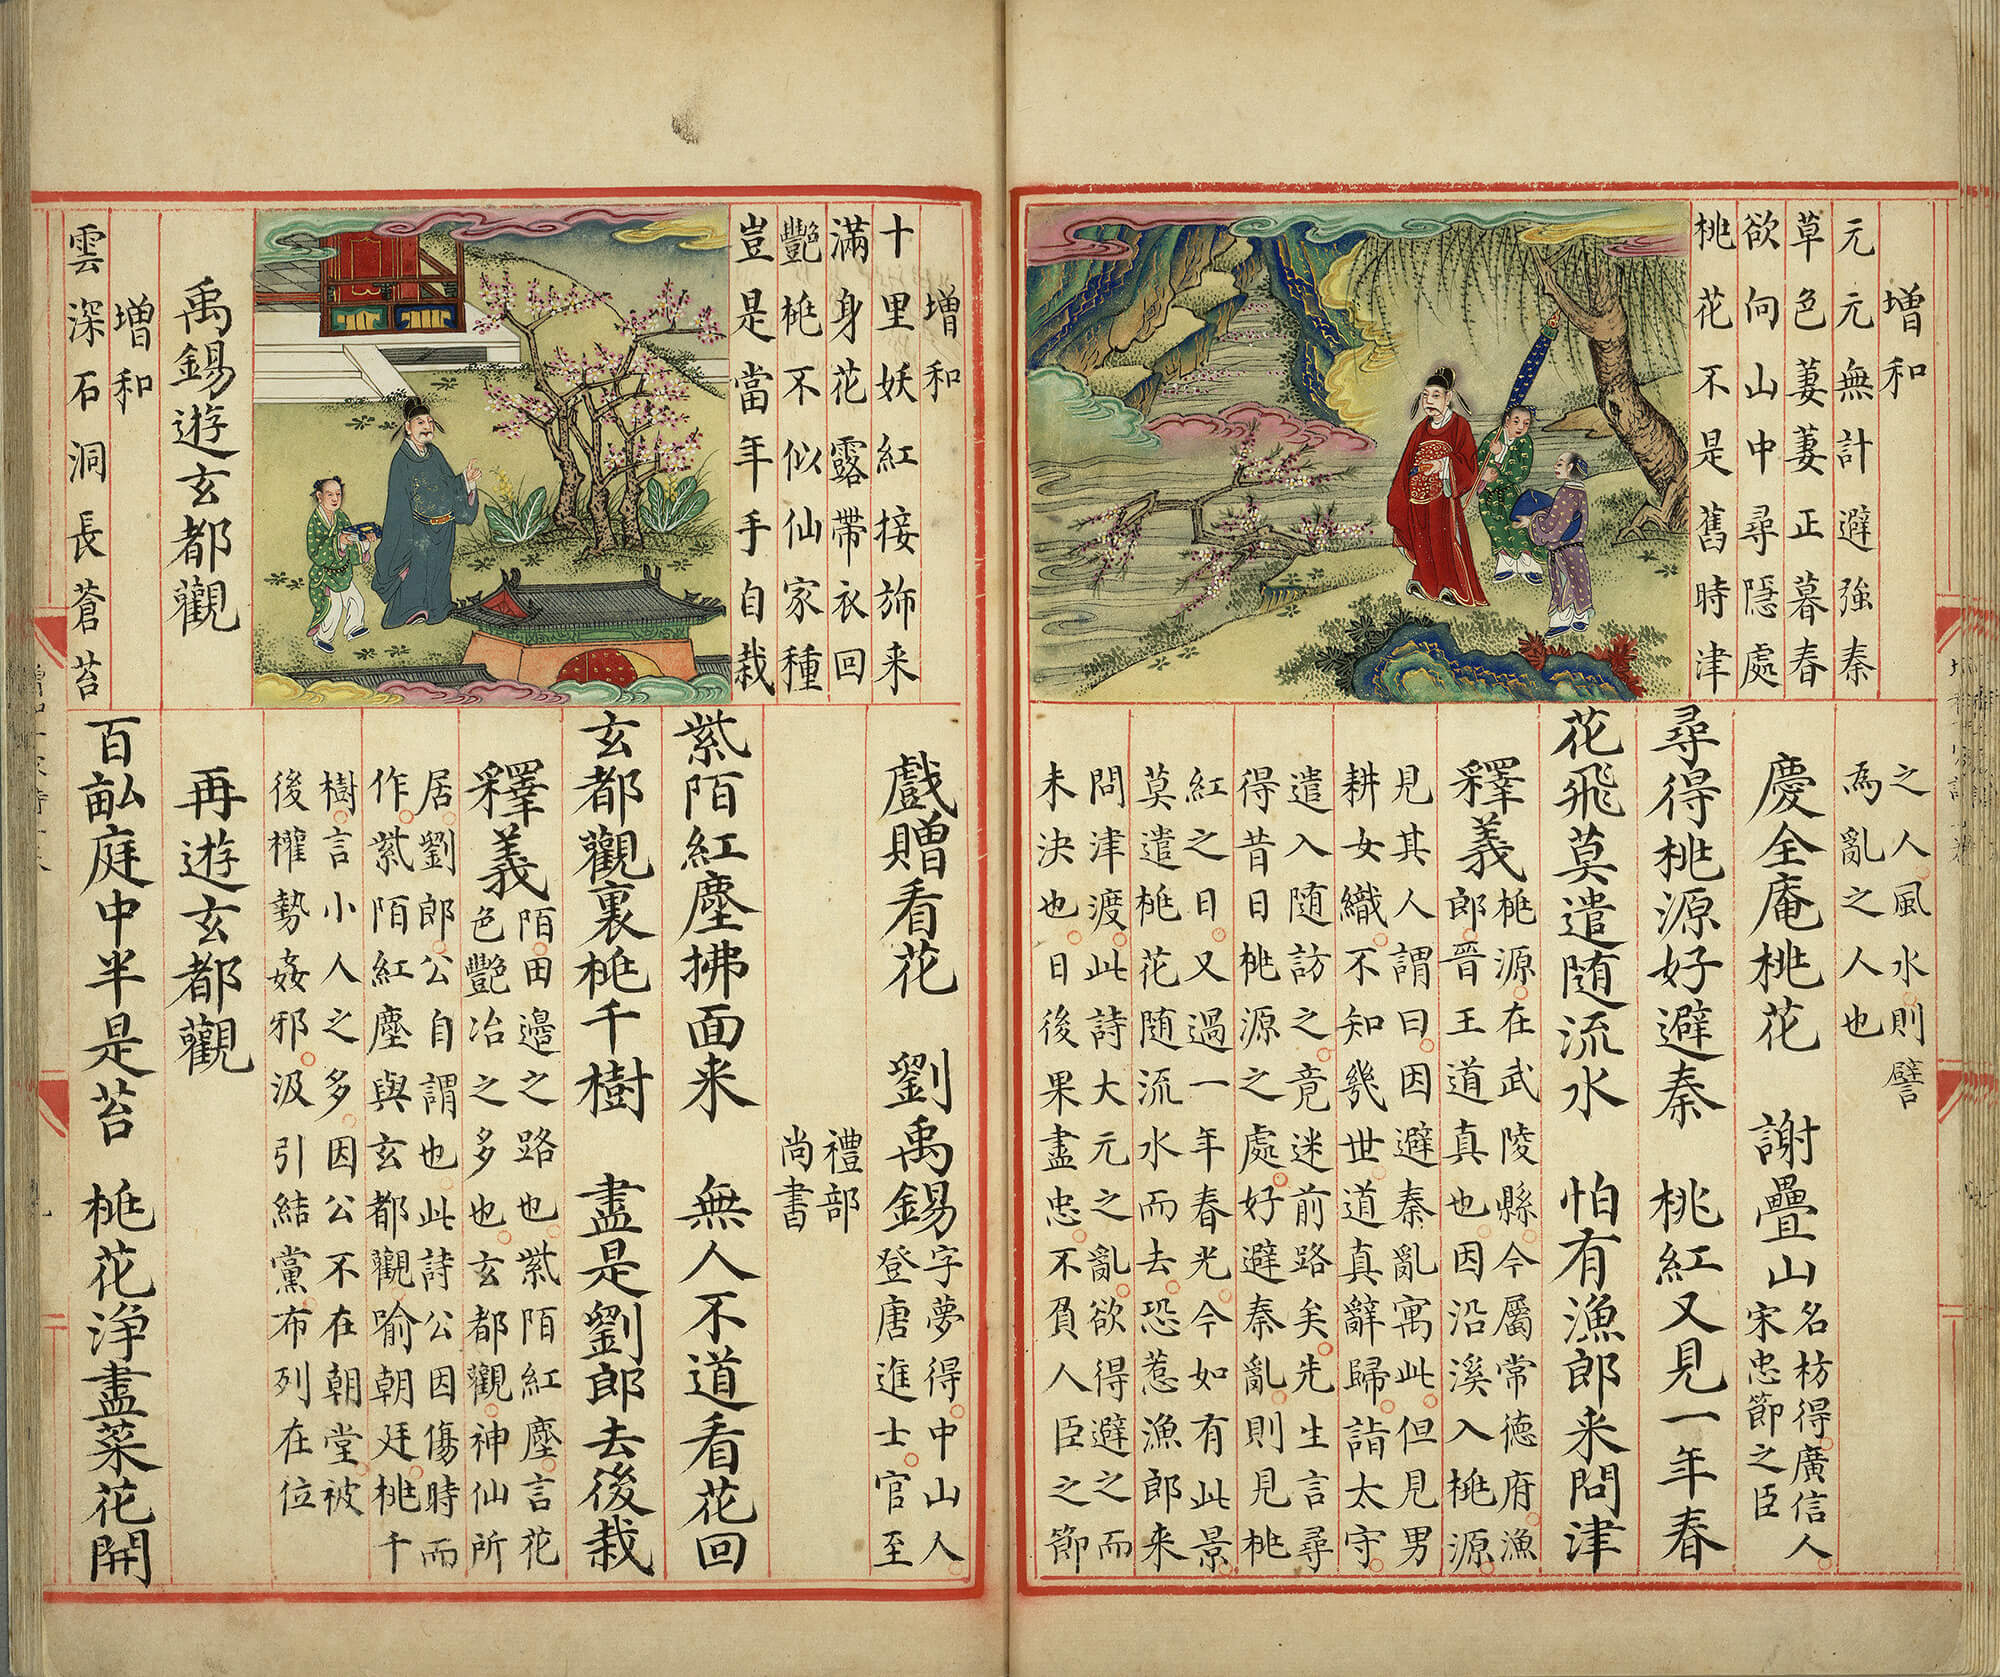 增和
元元無計避強秦
草色萋萋正暮春
欲向山中尋隠處
桃花不是舊時津
之人風水則譬
為亂之人也
慶全庵桃花 謝疊山 名枋得廣信人
宋忠節之臣
尋得桃源好避秦 桃紅又見一年春
花飛莫遣随流水 怕有漁郎来問津
釋義 桃源在武陵縣今屬常德府漁
郎晉王道真也因沿溪入桃源
見其人謂曰因避秦亂寓此但見男
耕女織不知幾世道真辭歸詣太守
遣入随訪之竟迷前路矣先生言尋
得昔日桃源之處好避秦亂則見桃
紅之日又過一年春光今如有此景
莫遣桃花随流水而去恐惹漁郎来
問津渡此詩大元之亂欲得避之而
未決也日後果盡忠不負人臣之節
增和
十里妖紅接斾来
滿身花露帶衣回
艷桃不似仙家種
豈是當年手自栽
禹錫遊玄都觀
增和
雲深石洞長蒼苔
戲贈看花 劉禹錫 字夢得中山人
登唐進士官至
禮部
尚書
紫陌紅塵拂面来 無人不道看花回
玄都觀裏桃千樹 盡是劉郎去後栽
釋義 陌田邉之路也紫陌紅塵言花
色艷冶之多也玄都觀神仙所
居劉郎公自謂也此詩公因傷時而
作紫陌紅塵與玄都觀喻朝廷桃千
樹言小人之多因公不在朝堂被
後權勢姦邪汲引結黨布列在位
再遊玄都觀
百畆庭中半是苔 桃花淨盡菜花開